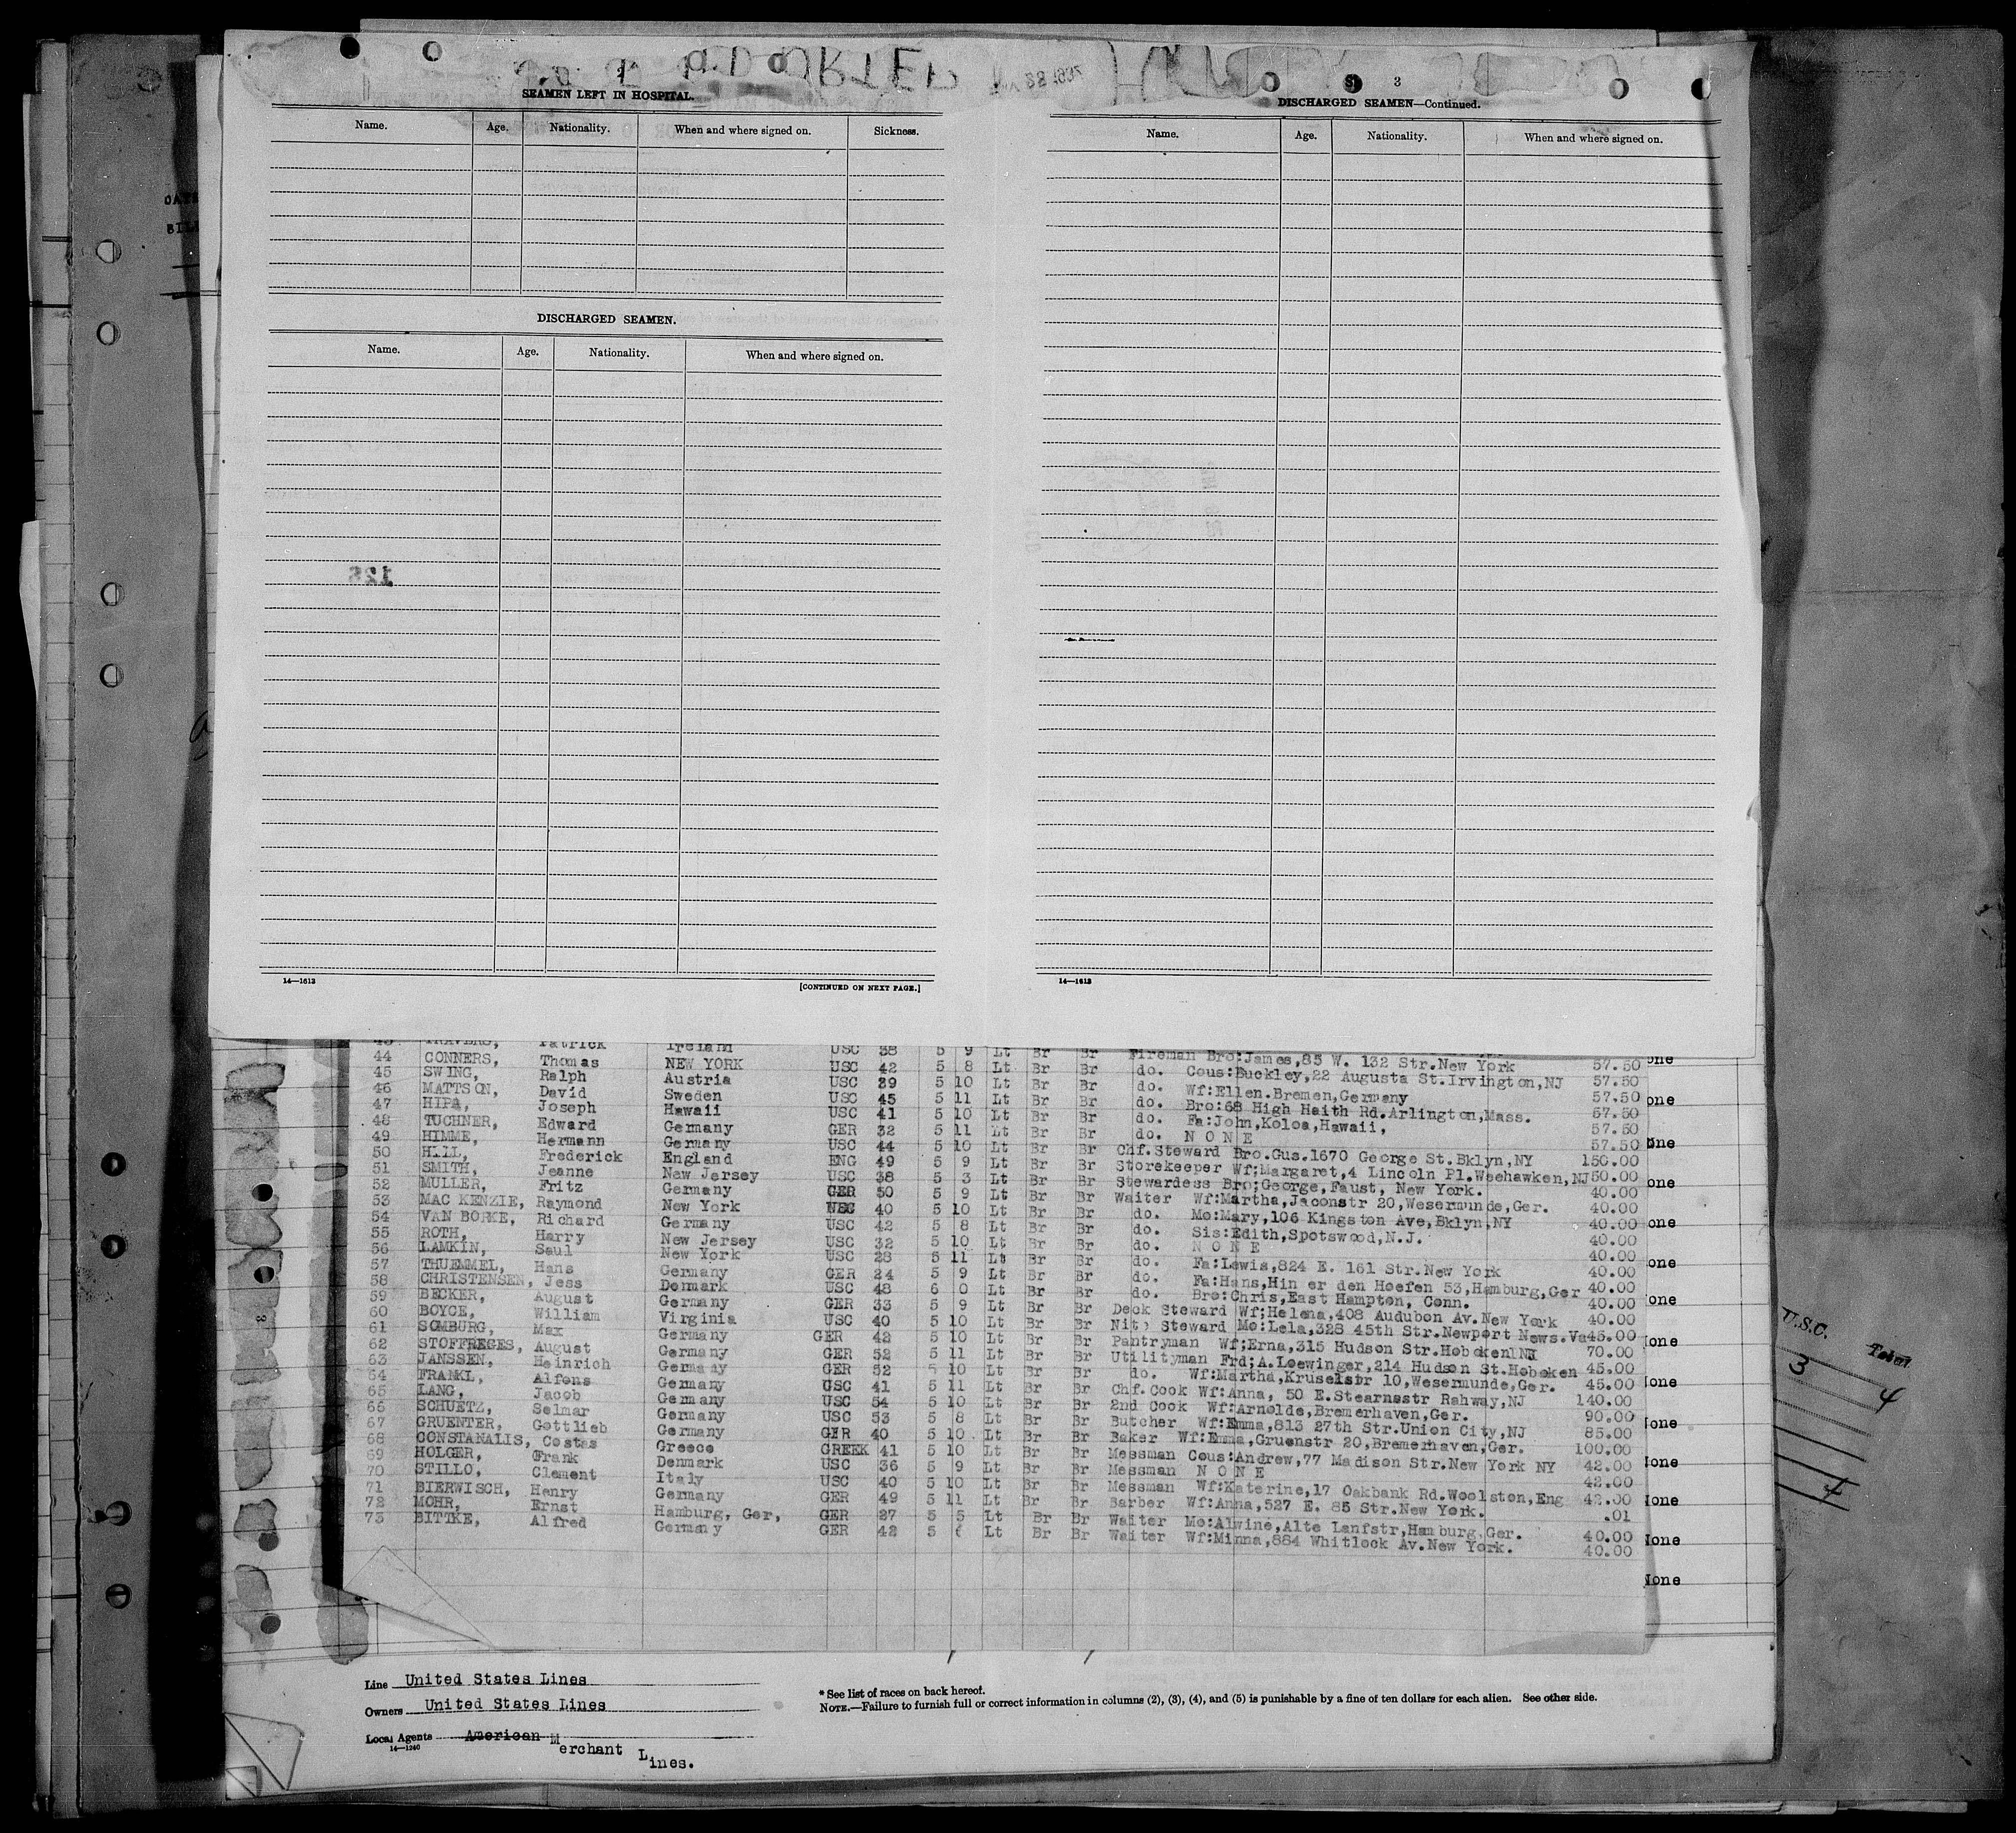 SEAMEN LEFT IN HOSPITAL.
Name. Age. Nationality. When and where signed on. Sickness.
DISCHARGED SEAMEN.
Name. Age. Nationality. When and where signed on.
14—1613 [CONTINUED ON NEXT PAGE.]
3
DISCHARGED SEAMEN—Continued.
Name. Age. Nationality. When and where signed on.
14—1613
43 TRAVERS, Patrick Ireland USC 38 5 9 Lt Br Br Fireman Bro:James,85 W. 132 Str.New York 57.50
44 CONNERS, Thomas NEW YORK USC 42 5 8 Lt Br Br do. Cous:Buckley,22 Augusta St.Irvington,NJ 57.50
45 SWING, Ralph Austria USC 39 5 10 Lt Br Br do. Wf:Ellen.Bremen,Germany 57.50
46 MATTSON, David Sweden USC 45 5 11 Lt Br Br do. Bro:68 High Haith Rd.Arlington,Mass. 57.50
47 HIPA, Joseph Hawaii USC 41 5 10 Lt Br Br do. Fa:John,Koloa,Hawaii, 57.50
48 TUCHNER, Edward Germany GER 32 5 11 Lt Br Br do. N O N E 57.50
49 HIMME, Hermann Germany USC 44 5 10 Lt Br Br Chf.Steward Bro.Gus.1670 George St.Bklyn,NY 150.00
50 HILL, Frederick England ENG 49 5 9 Lt Br Br Storekeeper Wf:Margaret,4 Lincoln Pl.Weehawken,NJ 50.00
51 SMITH, Jeanne New Jersey USC 38 5 3 Lt Br Br Stewardess Bro;George,Faust, New York. 40.00
52 MULLER, Fritz Germany GER 50 5 9 Lt Br Br Waiter Wf:Martha,Jaconstr 20,Wesermunde,Ger. 40.00
53 MAC KENZIE, Raymond New York USC 40 5 10 Lt Br Br do. Mo:Mary,106 Kingston Ave,Bklyn,NY 40.00
54 VAN BORKE, Richard Germany USC 42 5 8 Lt Br Br do. Sis:Edith,Spotswood,N.J. 40.00
55 ROTH, Harry New Jersey USC 32 5 10 Lt Br Br do. N O N E 40.00
56 LAMKIN, Saul New York USC 28 5 11 Lt Br Br do. Fa:Lewis,824 E. 161 Str.New York 40.00
57 THUEMMEL, Hans Germany GER 24 5 9 Lt Br Br do. Fa:Hans,Hin er den Hoefen 53,Hamburg,Ger 40.00
58 CHRISTENSEN, Jess Denmark USC 48 6 0 Lt Br Br do. Bro:Chris,East Hampton, Conn. 40.00
59 BECKER, August Germany GER 33 5 9 Lt Br Br Deck Steward Wf;Helena,408 Audubon Av.New York 40.00
60 BOYCE, William Virginia USC 40 5 10 Lt Br Br Nite Steward Mo:Lela,328 45th Str.Newport News.Va 45.00
61 SOMBURG, Max Germany GER 42 5 10 Lt Br Br Pantryman Wf;Erna,315 Hudson Str.Hoboken NJ 70.00
62 STOFFREGES, August Germany GER 52 5 11 Lt Br Br Utilityman Frd;A.Loewinger,214 Hudson St.Hoboken 45.00
63 JANSSEN, Heinrich Germany GER 52 5 10 Lt Br Br do. Wf:Martha,Kruselstr 10,Wesermunde,Ger. 45.00
64 FRANKL, Alfons Germany USC 41 5 11 Lt Br Br Chf.Cook Wf:Anna, 50 E.Stearnsstr Rahway,NJ 140.00
65 LANG, Jacob Germany USC 54 5 10 Lt Br Br 2nd Cook Wf:Arnolde,Bremerhaven,Ger. 90.00
66 SCHUETZ, Selmar Germany USC 53 5 8 Lt Br Br Butcher Wf:Emma,813 27th Str.Union City,NJ 85.00
67 GRUENTER, Gottlieb Germany GER 40 5 10 Lt Br Br Baker Wf:Emma,Gruenstr 20,Bremerhaven,Ger. 100.00
68 CONSTANALIS, Costas Greece GREEK 41 5 10 Lt Br Br Messman Cous:Andrew,77 Madison Str.New York NY 42.00
69 HOLGER, Frank Denmark USC 36 5 9 Lt Br Br Messman N O N E 42.00
70 STILLO, Clement Italy USC 40 5 10 Lt Br Br Messman Wf:Katerine,17 Oakbank Rd.Woolston,Eng 42.00
71 BIERWISCH, Henry Germany GER 49 5 11 Lt Br Br Barber Wf:Anna,527 E. 85 Str.New York. .01
72 MOHR, Ernst Hamburg, Ger, GER 27 5 5 Lt Br Br Waiter Mo:Alwine,Alte Lanfstr,Hamburg,Ger. 40.00
73 BITTKE, Alfred Germany GER 42 5 Lt Br Br Waiter Wf:Minna,884 Whitlock Av.New York. 40.00
U.S.C. Total
3 4
4
Line United States Lines
Owners United States Lines
Local Agents American Merchant Lines.
14—1240
* See list of races on back hereof.
NOTE.—Failure to furnish full or correct information in columns (2), (3), (4), and (5) is punishable by a fine of ten dollars for each alien. See other side.